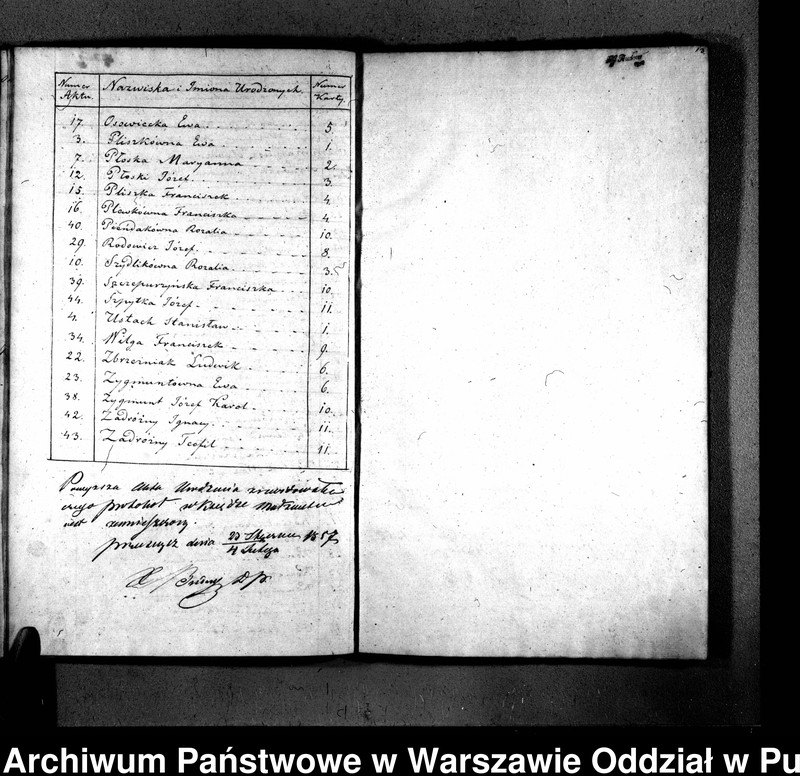 Numer Aktu. Nazwiska i Imiona Urodzonych. Numer Karty.
17. Osowiecka Ewa 5.
3. Pliszkówna Ewa 1.
7. Płoska Maryanna 2.
12. Płoski Józef 3.
15. Pliszka Franciszek 4.
16. Plewkówna Franciszka 4.
40. Rozalia 10.
29. Radowicz Józef. 8.
10. Szydlikówna Rozalia 3.
39. Szczepurzyńska Franciszka 10.
44. Szpytka Józef 11.
4. Ustach Stanisław 1.
34. Wilga Franciszek 9.
22. Zbrzeźniak Ludwik 6.
23. Zygmuntówna Ewa 6.
38. Zygmunt Józef Karol 10.
42. Zadróżny Ignacy. 11.
43. Zadróżny Teofil 11.
Powyższa Akta Urodzenia
protokół w Księdze
jest zamieszczony.
dnia 23 Stycznia 1857
4 Lutego
13
Archiwum Państwowe w Warszawie Oddział w Pu